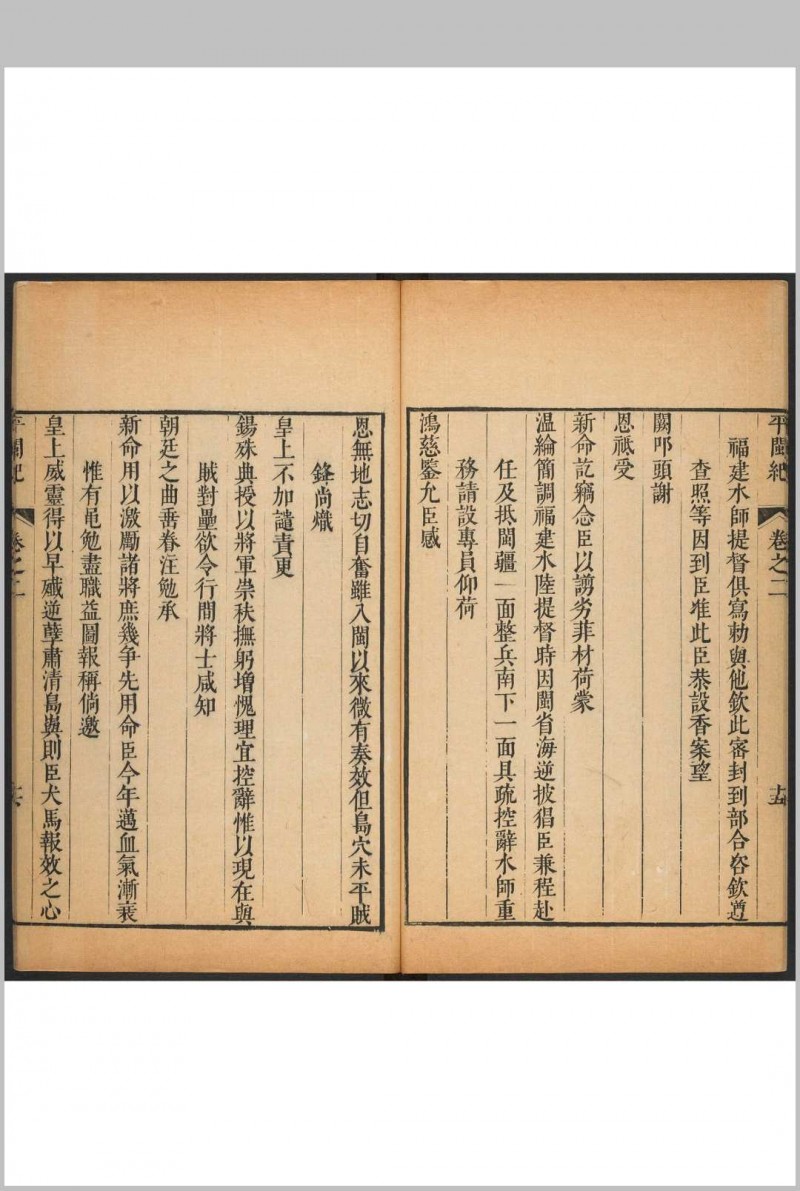 平閩紀 卷之二 十五
福建水師提督俱寫勅與他欽此審封到部合咨欽遵
查照等因到臣准此臣恭設香案望
闕叩頭謝
恩祗受
新命訖竊念臣以謭劣菲材荷蒙
溫綸簡調福建水陸提督時因閩省海逆披猖臣兼程赴
任及抵閩疆一面整兵南下一面具疏控辭水師重
務請設專員仰荷
鴻慈鑒允臣感
恩無地志切自奮雖入閩以來微有奏效但島穴未平賊
鋒尚熾
皇上不加譴責更
錫殊典授以將軍崇秩撫躬增愧理宜控辭惟以現在與
賊對壘欲令行間將士咸知
朝廷之曲垂眷注勉承
新命用以激勵諸將庶幾争先用命臣今年邁血氣漸衰
惟有黽勉盡職益圖報稱倘邀
皇上威靈得以早殲逆孽肅清島與則臣犬馬報效之心
平閩紀 卷之二 十六